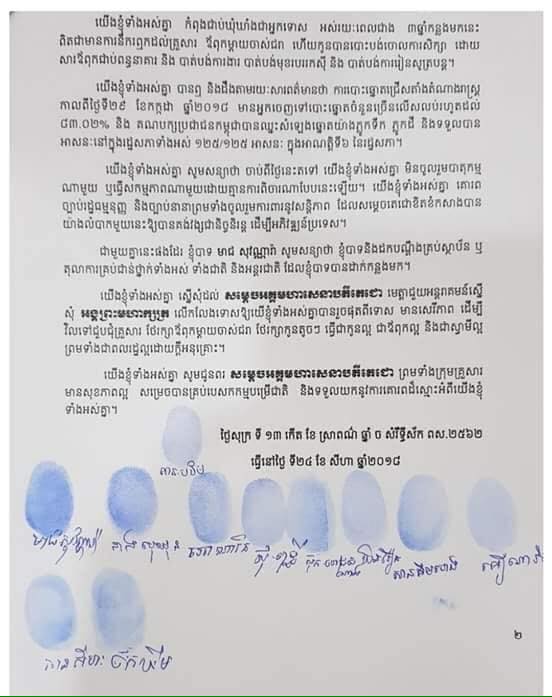 យើងខ្ញុំទាំងអស់គ្នា កំពុងជាប់ឃុំឃាំងជាអ្នកទោស អស់រយៈពេលជាង ៣ឆ្នាំកន្លងមកនេះ
ពិតជាមានការនឹករឭកដល់គ្រួសារ ឪពុកម្តាយចាស់ជរា ហើយកូនបានបោះបង់ចោលការសិក្សា ដោយ
សារឪពុកជាប់ពន្ធនាគារ និង បាត់បង់ការងារ បាត់បង់មុខរបររកស៊ី និង បាត់បង់ការរៀនសូត្របន្ត។
យើងខ្ញុំទាំងអស់គ្នា បានឮ និងដឹងតាមរយៈសារព័ត៌មានថា ការបោះឆ្នោតជ្រើសតាំងតំណាងរាស្ត្រ
កាលពីថ្ងៃទី២៩ ខែកក្កដា ឆ្នាំ២០១៨ មានអ្នកចេញទៅបោះឆ្នោតចំនួនច្រើនលើសលប់រហូតដល់
៨៣.០២% និង គណបក្សប្រជាជនកម្ពុជាបានឈ្នះសំឡេងឆ្នោតយ៉ាងភ្លូកទឹក ភ្លូកដី និងទទួលបាន
អាសនៈនៅក្នុងរដ្ឋសភាទាំងអស់ ១២៥/១២៥ អាសនៈ ក្នុងអាណត្តិទី៦ នៃរដ្ឋសភា។
យើងខ្ញុំទាំងអស់គ្នា សូមសន្យាថា ចាប់ពីថ្ងៃនេះតទៅ យើងខ្ញុំទាំងអស់គ្នា មិនចូលរួមបាតុកម្ម
ណាមួយ ឬធ្វើសកម្មភាពណាមួយដោយគ្មានការពិចារណាបែបនេះឡើយ។ យើងខ្ញុំទាំងអស់គ្នា គោរព
ច្បាប់រដ្ឋធម្មនុញ្ញ និងច្បាប់នានាព្រមទាំងចូលរួមការពារនូវសន្តិភាព ដែលសម្តេចតេជោខិតខំកសាងបាន
យ៉ាងលំបាកមួយនេះឱ្យបានគង់វង្សជានិច្ចនិរន្ត ដើម្បីអភិវឌ្ឍន៍ប្រទេស។
ជាមួយគ្នានេះផងដែរ ខ្ញុំបាទ មាជ សុវណ្ណារ៉ា សូមសន្យាថា ខ្ញុំបាទនឹងដកបណ្តឹងគ្រប់ស្ថាប័ន ឬ
តុលាការគ្រប់ជាន់ថ្នាក់ទាំងអស់ ទាំងជាតិ និងអន្តរជាតិ ដែលខ្ញុំបាទបានដាក់កន្លងមក។
យើងខ្ញុំទាំងអស់គ្នា ស្នើសុំដល់ សម្តេចអគ្គមហាសេនាបតីតេជោ មេត្តាជួយអន្តរាគមន៍ស្នើ
សុំ អង្គព្រះមហាក្សត្រ លើកលែងទោសឱ្យយើងខ្ញុំទាំងអស់គ្នាបានរួចផុតពីទោស មានសេរីភាព ដើម្បី
វិលទៅជួបជុំគ្រួសារ ថែរក្សាឪពុកម្តាយចាស់ជរា ថែរក្សាកូនតូចៗ ធ្វើជាកូនល្អ ជាឪពុកល្អ និងជាស្វាមីល្អ
ព្រមទាំងជាពលរដ្ឋល្អដោយក្តីអនុគ្រោះ។
យើងខ្ញុំទាំងអស់គ្នា សូមជូនពរ សម្តេចអគ្គមហាសេនាបតីតេជោ ព្រមទាំងក្រុមគ្រួសារ
មានសុខភាពល្អ សម្រេចបានគ្រប់បេសកកម្មបម្រើជាតិ និងទទួលយកនូវការគោរពដ៏ស្មោះអំពីយើងខ្ញុំ
ទាំងអស់គ្នា។
ថ្ងៃសុក្រ ទី ១៣ កើត ខែ ស្រាពណ៍ ឆ្នាំ ច សំរឹទ្ធិស័ក ពស.២៥៦២
ធ្វើនៅថ្ងៃ ទី២៤ ខែ សីហា ឆ្នាំ២០១៨
២